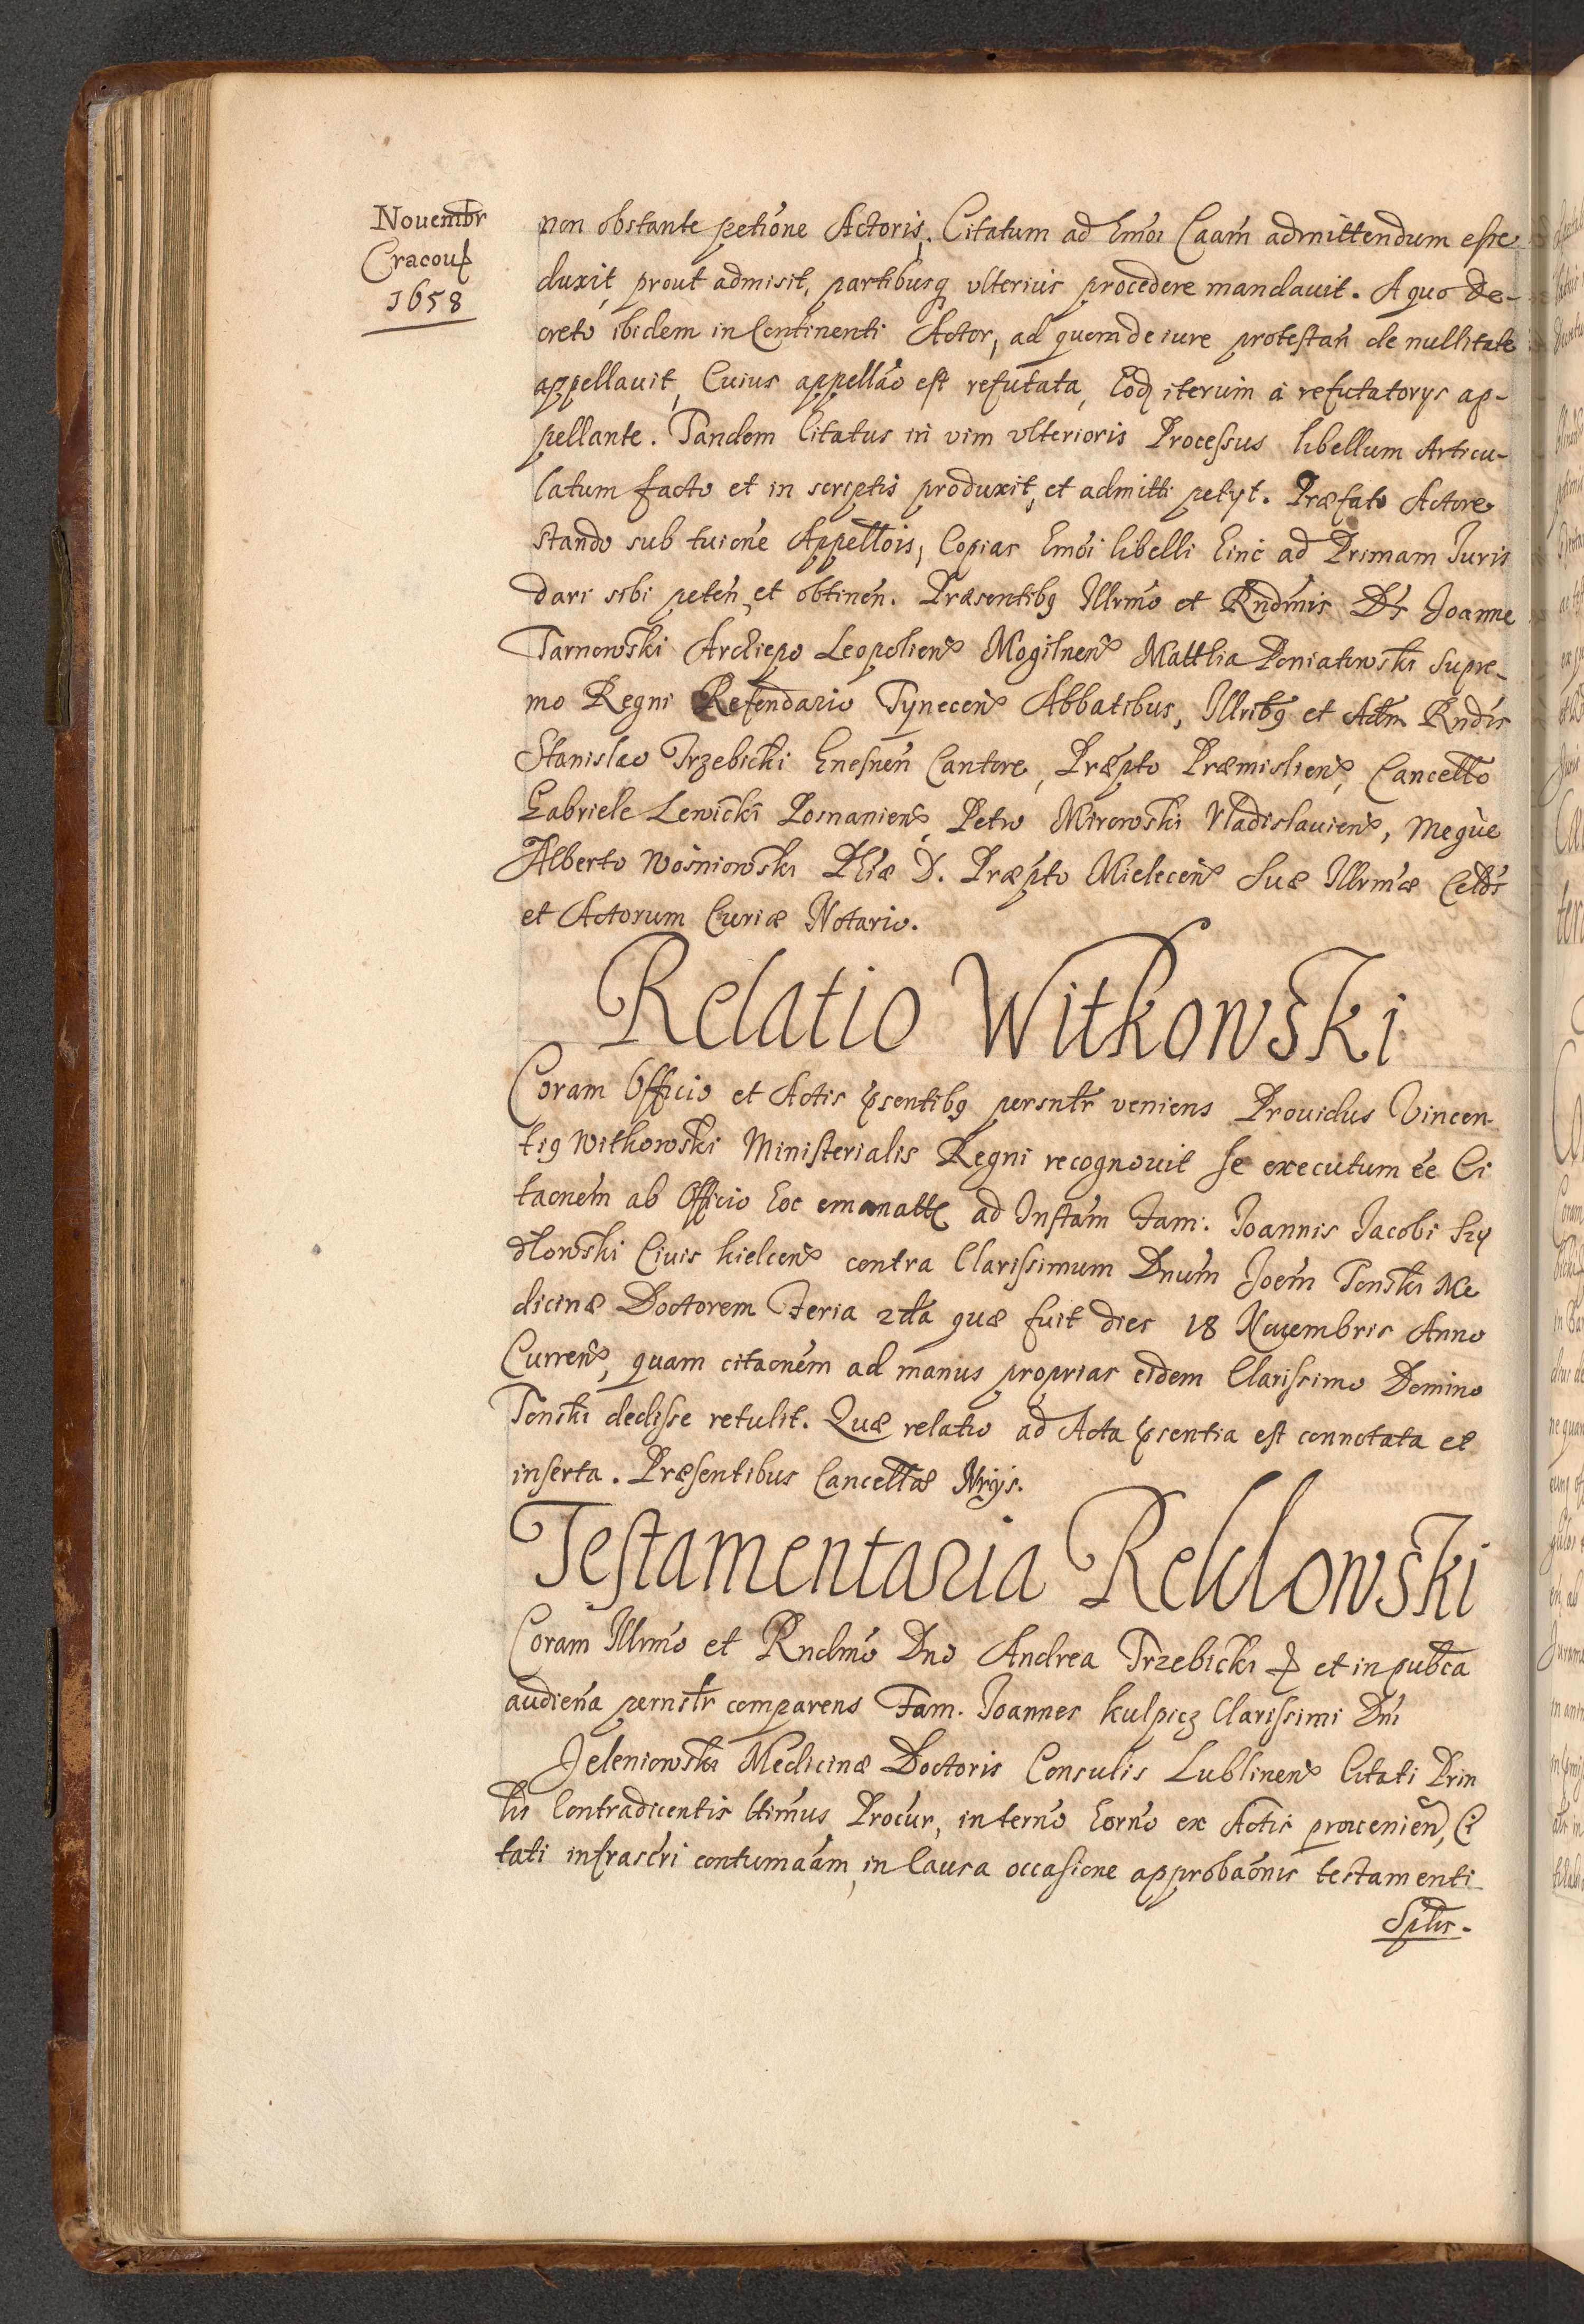 Nouembr
Cracouȩ
1658
non obstante petióne Actoris, Citatum ad hmói Caam̃ admittendum esse
duxit, prout admisit, partibusq̨ vlterius procedere mandauit. A quo De-
creto ibidem in Continenti Actor, ad quem de iure protestań de nullitate
appellauit, Cuius appelláo est refutata, Eod iterum á refutatorys ap-
pellante. Tandem Citatus in vim vlterioris Processus libellum Articu-
latum facto et in scriptis produxit, et admitti petyt. Præfato Actore
stando sub tuióne Appellóis, Copias hmói libelli hinc ad Primam Iuris
dari sibi peteń et obtineń. Præsentibȝ Illrmo et Rndmis DD Joanne
Tarnowski Archiepo Leopolieñ Mogilneñ Matthia Poniatowski Supre-
mo Regni Refendario Tyneceñ Abbatibus, Illribȝ et Adm Rndis
Stanislao Trzebicki Gnesneń Cantore, Præpto Præmislieñ, Cancello
Gabriele Lewicki Posnanieñ, Petro Mirowski Vladislauieñ, meque
Alberto Wośniowski Phiæ D. Præpto Mieleceñ Suæ Illrmæ Celdis
et Actorum Curiæ Notario.
Relatio Witkowski
Coram Officio et Actis psentibȝ persnlr veniens Prouidus Vincen-
tiȝ Witkowski Ministerialis Regni recognouit se executum ée Ci
taonem ab Officio hoc emanatt ad Instám Fam. Joannis Jacobi Szy
dłowski Ciuis kielceñ contra Clarissimum Dnum Joem Tonski Me
dicinæ Doctorem Feria 2da quæ fuit dies 18 Nouembris Anno
Curreñ, quam citaonem ad manus proprias eidem Clarissimo Domino
Tonski dedisse retulit. Quæ relatio ad Acta psentia est connotata et
inserta. Præsentibus Cancellæ Nrijs.
Testamentaria Reklowski
Coram Illrmo et Rndmo Dno Andrea Trzebicki et in publca
audieña pernslr comparens Fam. Joannes kulpicz Clarissimi Dni
Jeleniowski Medicinæ Doctoris Consulis Lublineñ Citati Prin
lis Contradicentis ltimus Procur, in termo horno ex Actis proueníeñ, Ci
tati infrascri contumaám, in Causa occasione approbaónis testamenti
Splis.